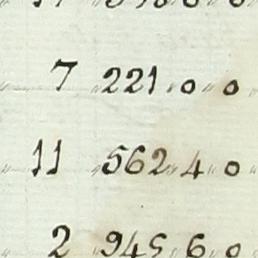 7 „221„0„0
11 „562„4„0
2 „945„6„0